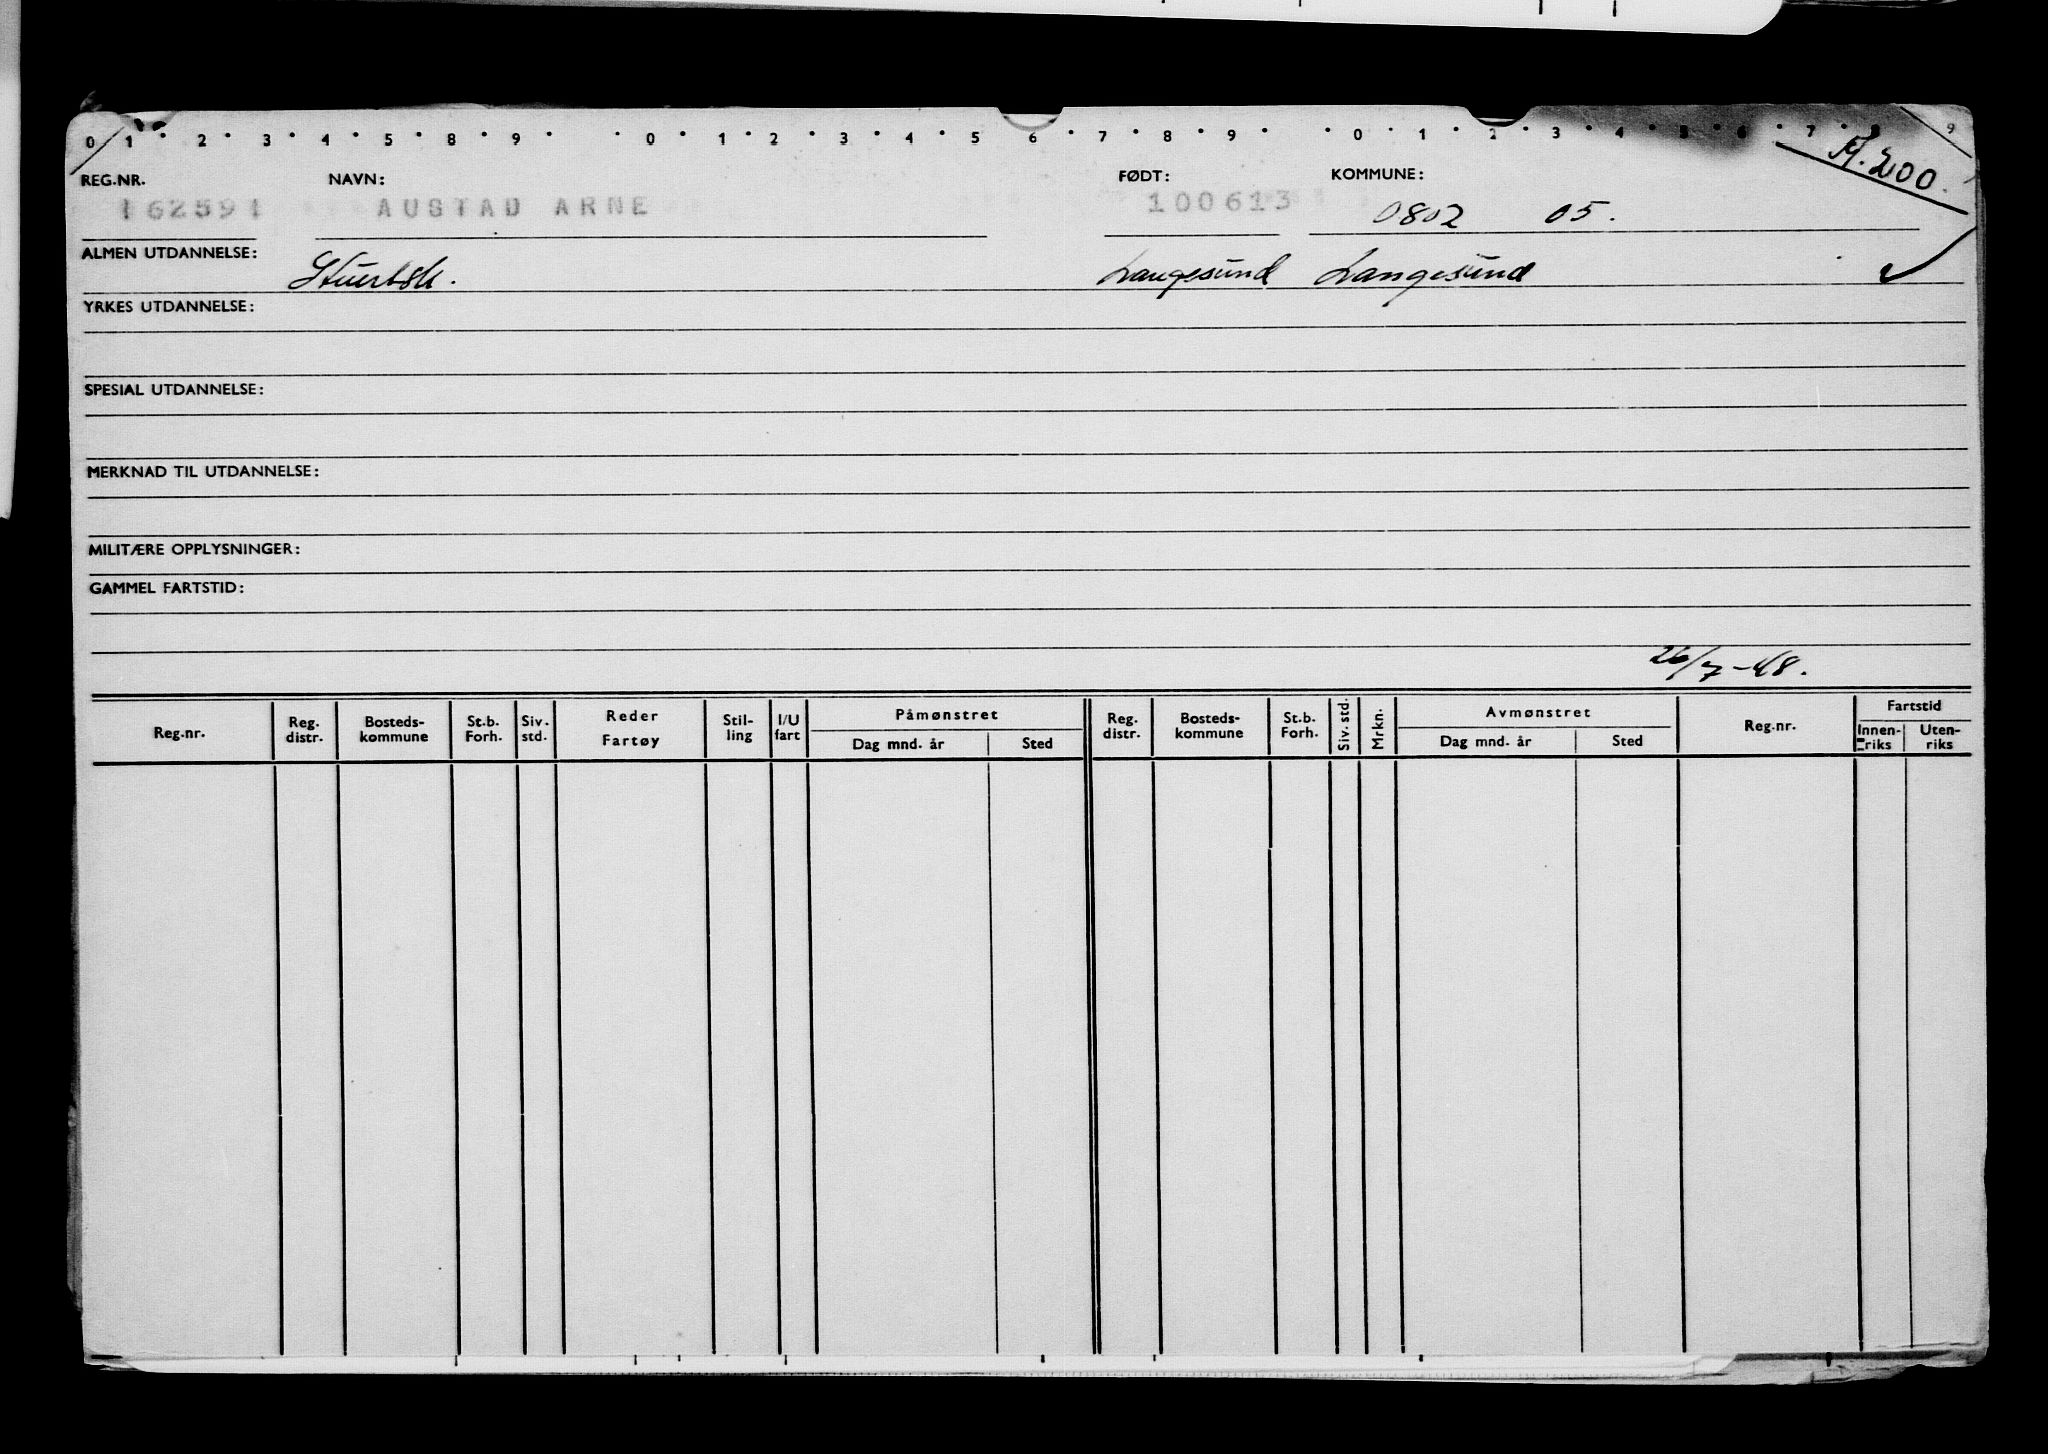 0 1 2 3 4 5 8 9 0 1 2 3 4 5 6 7 8 9 0 1 2 3 4 5 6 7 8 9
H. 200.
REG.NR. NAVN: FØDT: KOMMUNE:
162591 AUSTAD ARNE 100613 0802 05.
ALMEN UTDANNELSE: Langesund Langesund
YRKES UTDANNELSE:
SPESIAL UTDANNELSE:
MERKNAD TIL UTDANNELSE:
MILITÆRE OPPLYSNINGER:
GAMMEL FARTSTID:
26/7-48.
Reg.nr. Reg. distr. Bosteds-kommune St.b. Forh. Siv. std. Reder Fartøy Stil-ling I/U fart Påmønstret Dag mnd. år Sted Reg. distr. Bosteds-kommune St.b. Forh. Siv. std. Mrkn. Avmønstret Dag mnd. år Sted Reg.nr. Fartstid Innen-riks Uten-riks